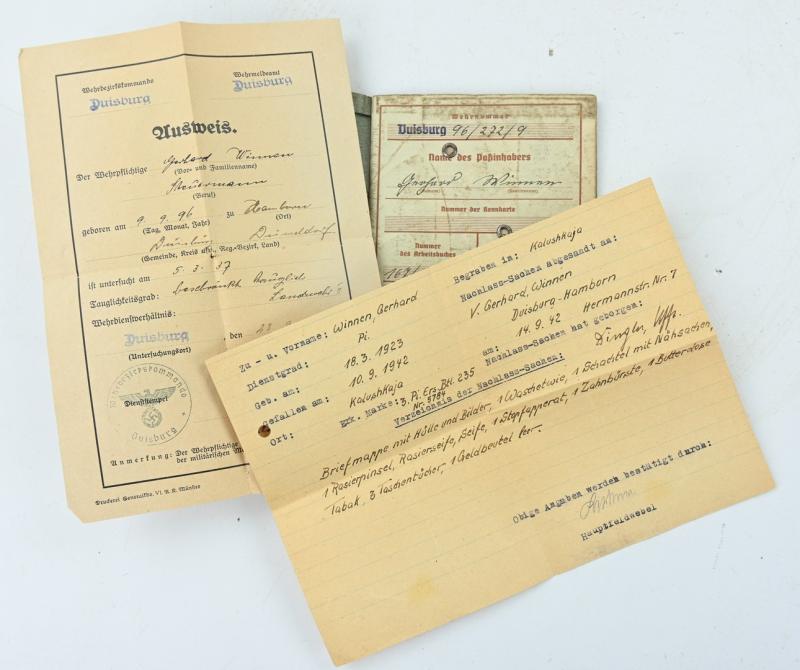 Wehrbezirkskommando
Duisburg
Wehrmeldeamt
Duisburg
Ausweis.
Der Wehrpflichtige Gerhard Winnen
(Vor- und Familienname)
Steuermann
(Beruf)
geboren am 9.9.96 zu Hamborn
(Tag, Monat, Jahr) (Ort)
Duisburg Düsseldorf
(Gemeinde, Kreis usw., Reg.-Bezirk, Land)
ist untersucht am 5.3.37
Tauglichkeitsgrad: beschränkt tauglich
Wehrdienstverhältnis: Landwehr
Duisburg, den 23.
(Untersuchungsort)
Wehrbezirkskommando
Dienststempel
Duisburg
Anmerkung: Der Wehrpflichtige
der militärischen
Druckerei Generalkdo. VI. A. K. Münster
Wehrnummer
Duisburg 96/272/9
Name des Paßinhabers
Gerhard Winnen
Nummer der Kennkarte
Nummer
des Arbeitsbuches
Zu- u. Vorname: Winnen, Gerhard
Dienstgrad: Pi.
Geb. am: 18.3.1923
Gefallen am: 10.9.1942
Ort: Kalushkaja
Erk. Marke: 3. Pi. Ers. Btl. 235
Nr. 5784
Begraben in: Kalushkaja
Nachlass-Sachen abgesandt an:
V. Gerhard, Winnen
Duisburg-Hamborn
Hermannstr. Nr. 7
am: 14.9.42
Nachlass-Sachen hat geborgen:
Dingler, Uffz.
Verzeichnis der Nachlass-Sachen:
Briefmappe mit Hülle und Bilder, 1 Waschetwie, 1 Schachtel mit Nähsachen,
1 Rasierpinsel, Rasierseife, Seife, 1 Stopfapperat, 1 Zahnbürste, 1 Butterdose
Tabak, 3 Taschentücher, 1 Geldbeutel leer.
Obige Angaben werden bestätigt durch:
Hauptfeldwebel